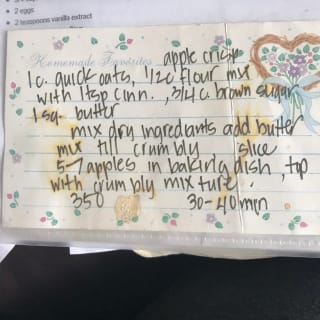 • 2 eggs
• 2 teaspoons vanilla extract
Homemade Favorites apple crisp
1 c. quick oats, 1/2 c flour mix
with 1 tsp cinn., 3/4 c. brown sugar
1 sq. butter
mix dry ingredients add butter
mix till crumbly slice
5-7 apples in baking dish, top
with crumbly mixture.
350 30-40 min